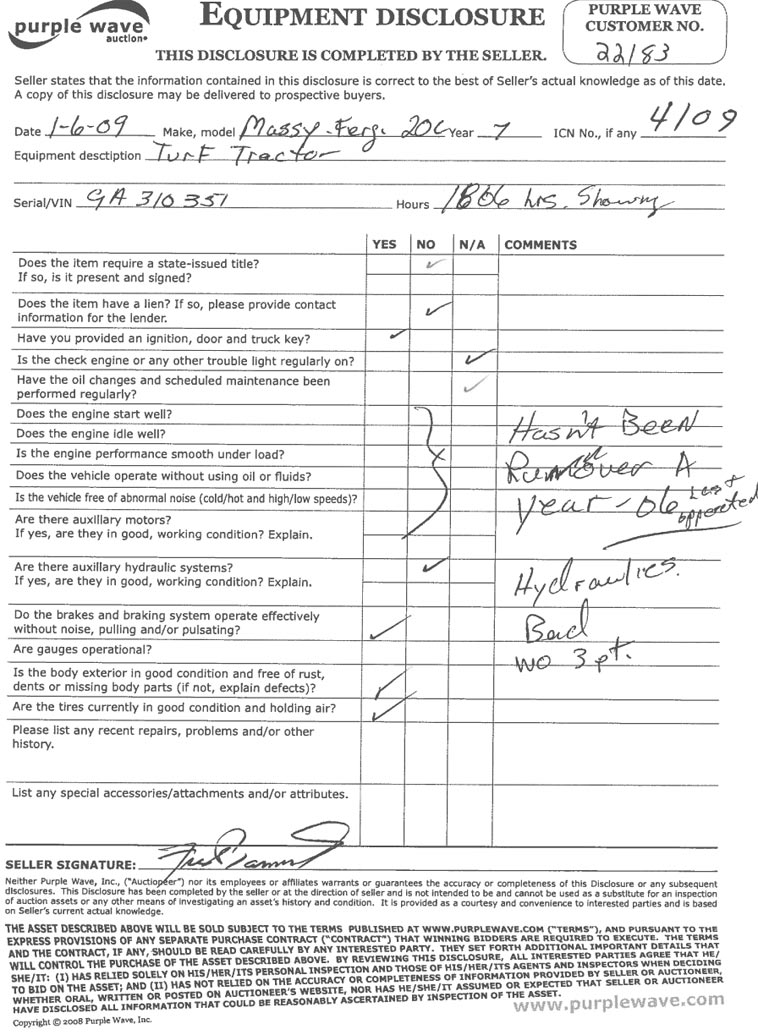 purple wave
auction
EQUIPMENT DISCLOSURE
PURPLE WAVE
CUSTOMER NO.
22183
THIS DISCLOSURE IS COMPLETED BY THE SELLER.
Seller states that the information contained in this disclosure is correct to the best of Seller's actual knowledge as of this date.
A copy of this disclosure may be delivered to prospective buyers.
Date 1-6-09 Make, model Massy-Ferg. 20C Year ? ICN No., if any 4109
Equipment desctiption Turf Tractor
Serial/VIN GA 310351 Hours 1806 hrs. Showing
YES NO N/A COMMENTS
Does the item require a state-issued title?
If so, is it present and signed?
Does the item have a lien? If so, please provide contact
information for the lender.
Have you provided an ignition, door and truck key?
Is the check engine or any other trouble light regularly on?
Have the oil changes and scheduled maintenance been
performed regularly?
Does the engine start well?
Does the engine idle well?
Hasn't Been
Is the engine performance smooth under load?
Run over A
Does the vehicle operate without using oil or fluids?
Is the vehicle free of abnormal noise (cold/hot and high/low speeds)?
year - 06 Last opperated
Are there auxillary motors?
If yes, are they in good, working condition? Explain.
Are there auxillary hydraulic systems?
If yes, are they in good, working condition? Explain.
Hydraulics.
Do the brakes and braking system operate effectively
without noise, pulling and/or pulsating?
Bad
Are gauges operational?
wo 3 pt.
Is the body exterior in good condition and free of rust,
dents or missing body parts (if not, explain defects)?
Are the tires currently in good condition and holding air?
Please list any recent repairs, problems and/or other
history.
List any special accessories/attachments and/or attributes.
SELLER SIGNATURE:
Neither Purple Wave, Inc., ("Auctiopeer") nor its employees or affiliates warrants or guarantees the accuracy or completeness of this Disclosure or any subsequent
disclosures. This Disclosure has been completed by the seller or at the direction of seller and is not intended to be and cannot be used as a substitute for an inspection
of auction assets or any other means of investigating an asset's history and condition. It is provided as a courtesy and convenience to interested parties and is based
on Seller's current actual knowledge.
THE ASSET DESCRIBED ABOVE WILL BE SOLD SUBJECT TO THE TERMS PUBLISHED AT WWW.PURPLEWAVE.COM ("TERMS"), AND PURSUANT TO THE
EXPRESS PROVISIONS OF ANY SEPARATE PURCHASE CONTRACT ("CONTRACT") THAT WINNING BIDDERS ARE REQUIRED TO EXECUTE. THE TERMS
AND THE CONTRACT, IF ANY, SHOULD BE READ CAREFULLY BY ANY INTERESTED PARTY. THEY SET FORTH ADDITIONAL IMPORTANT DETAILS THAT
WILL CONTROL THE PURCHASE OF THE ASSET DESCRIBED ABOVE. BY REVIEWING THIS DISCLOSURE, ALL INTERESTED PARTIES AGREE THAT HE/
SHE/IT: (I) HAS RELIED SOLELY ON HIS/HER/ITS PERSONAL INSPECTION AND THOSE OF HIS/HER/ITS AGENTS AND INSPECTORS WHEN DECIDING
TO BID ON THE ASSET; AND (II) HAS NOT RELIED ON THE ACCURACY OR COMPLETENESS OF INFORMATION PROVIDED BY SELLER OR AUCTIONEER,
WHETHER ORAL, WRITTEN OR POSTED ON AUCTIONEER'S WEBSITE, NOR HAS HE/SHE/IT ASSUMED OR EXPECTED THAT SELLER OR AUCTIONEER
HAVE DISCLOSED ALL INFORMATION THAT COULD BE REASONABLY ASCERTAINED BY INSPECTION OF THE ASSET.
www.purplewave.com
Copyright © 2008 Purple Wave, Inc.